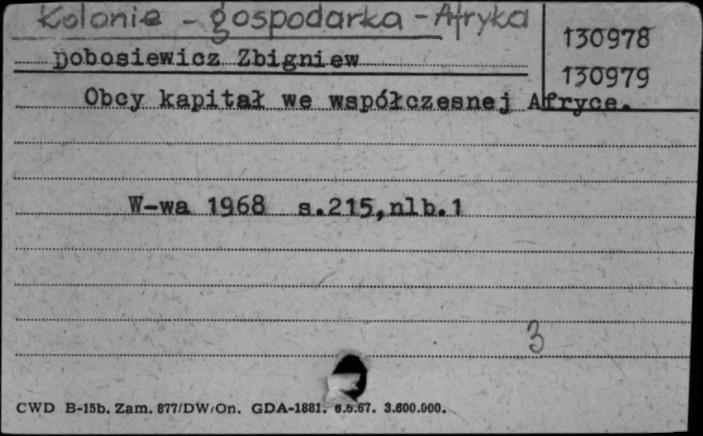 Kolonie - gospodarka - Afryka
130978
Dobosiewicz Zbigniew
130979
Obcy kapitał we współczesnej Afryce.
W-wa 1968 s.215,nlb.1
3
CWD B-15b. Zam. 877/DW/On. GDA-1881. 6.6.67. 3.600.000.